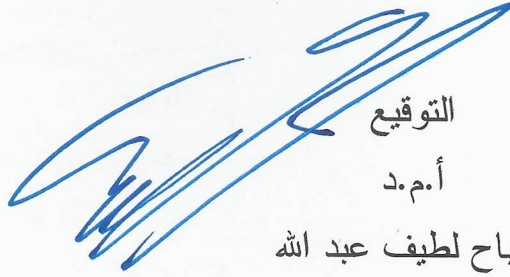 التوقيع
أ.م.د
لطيف عبد الله